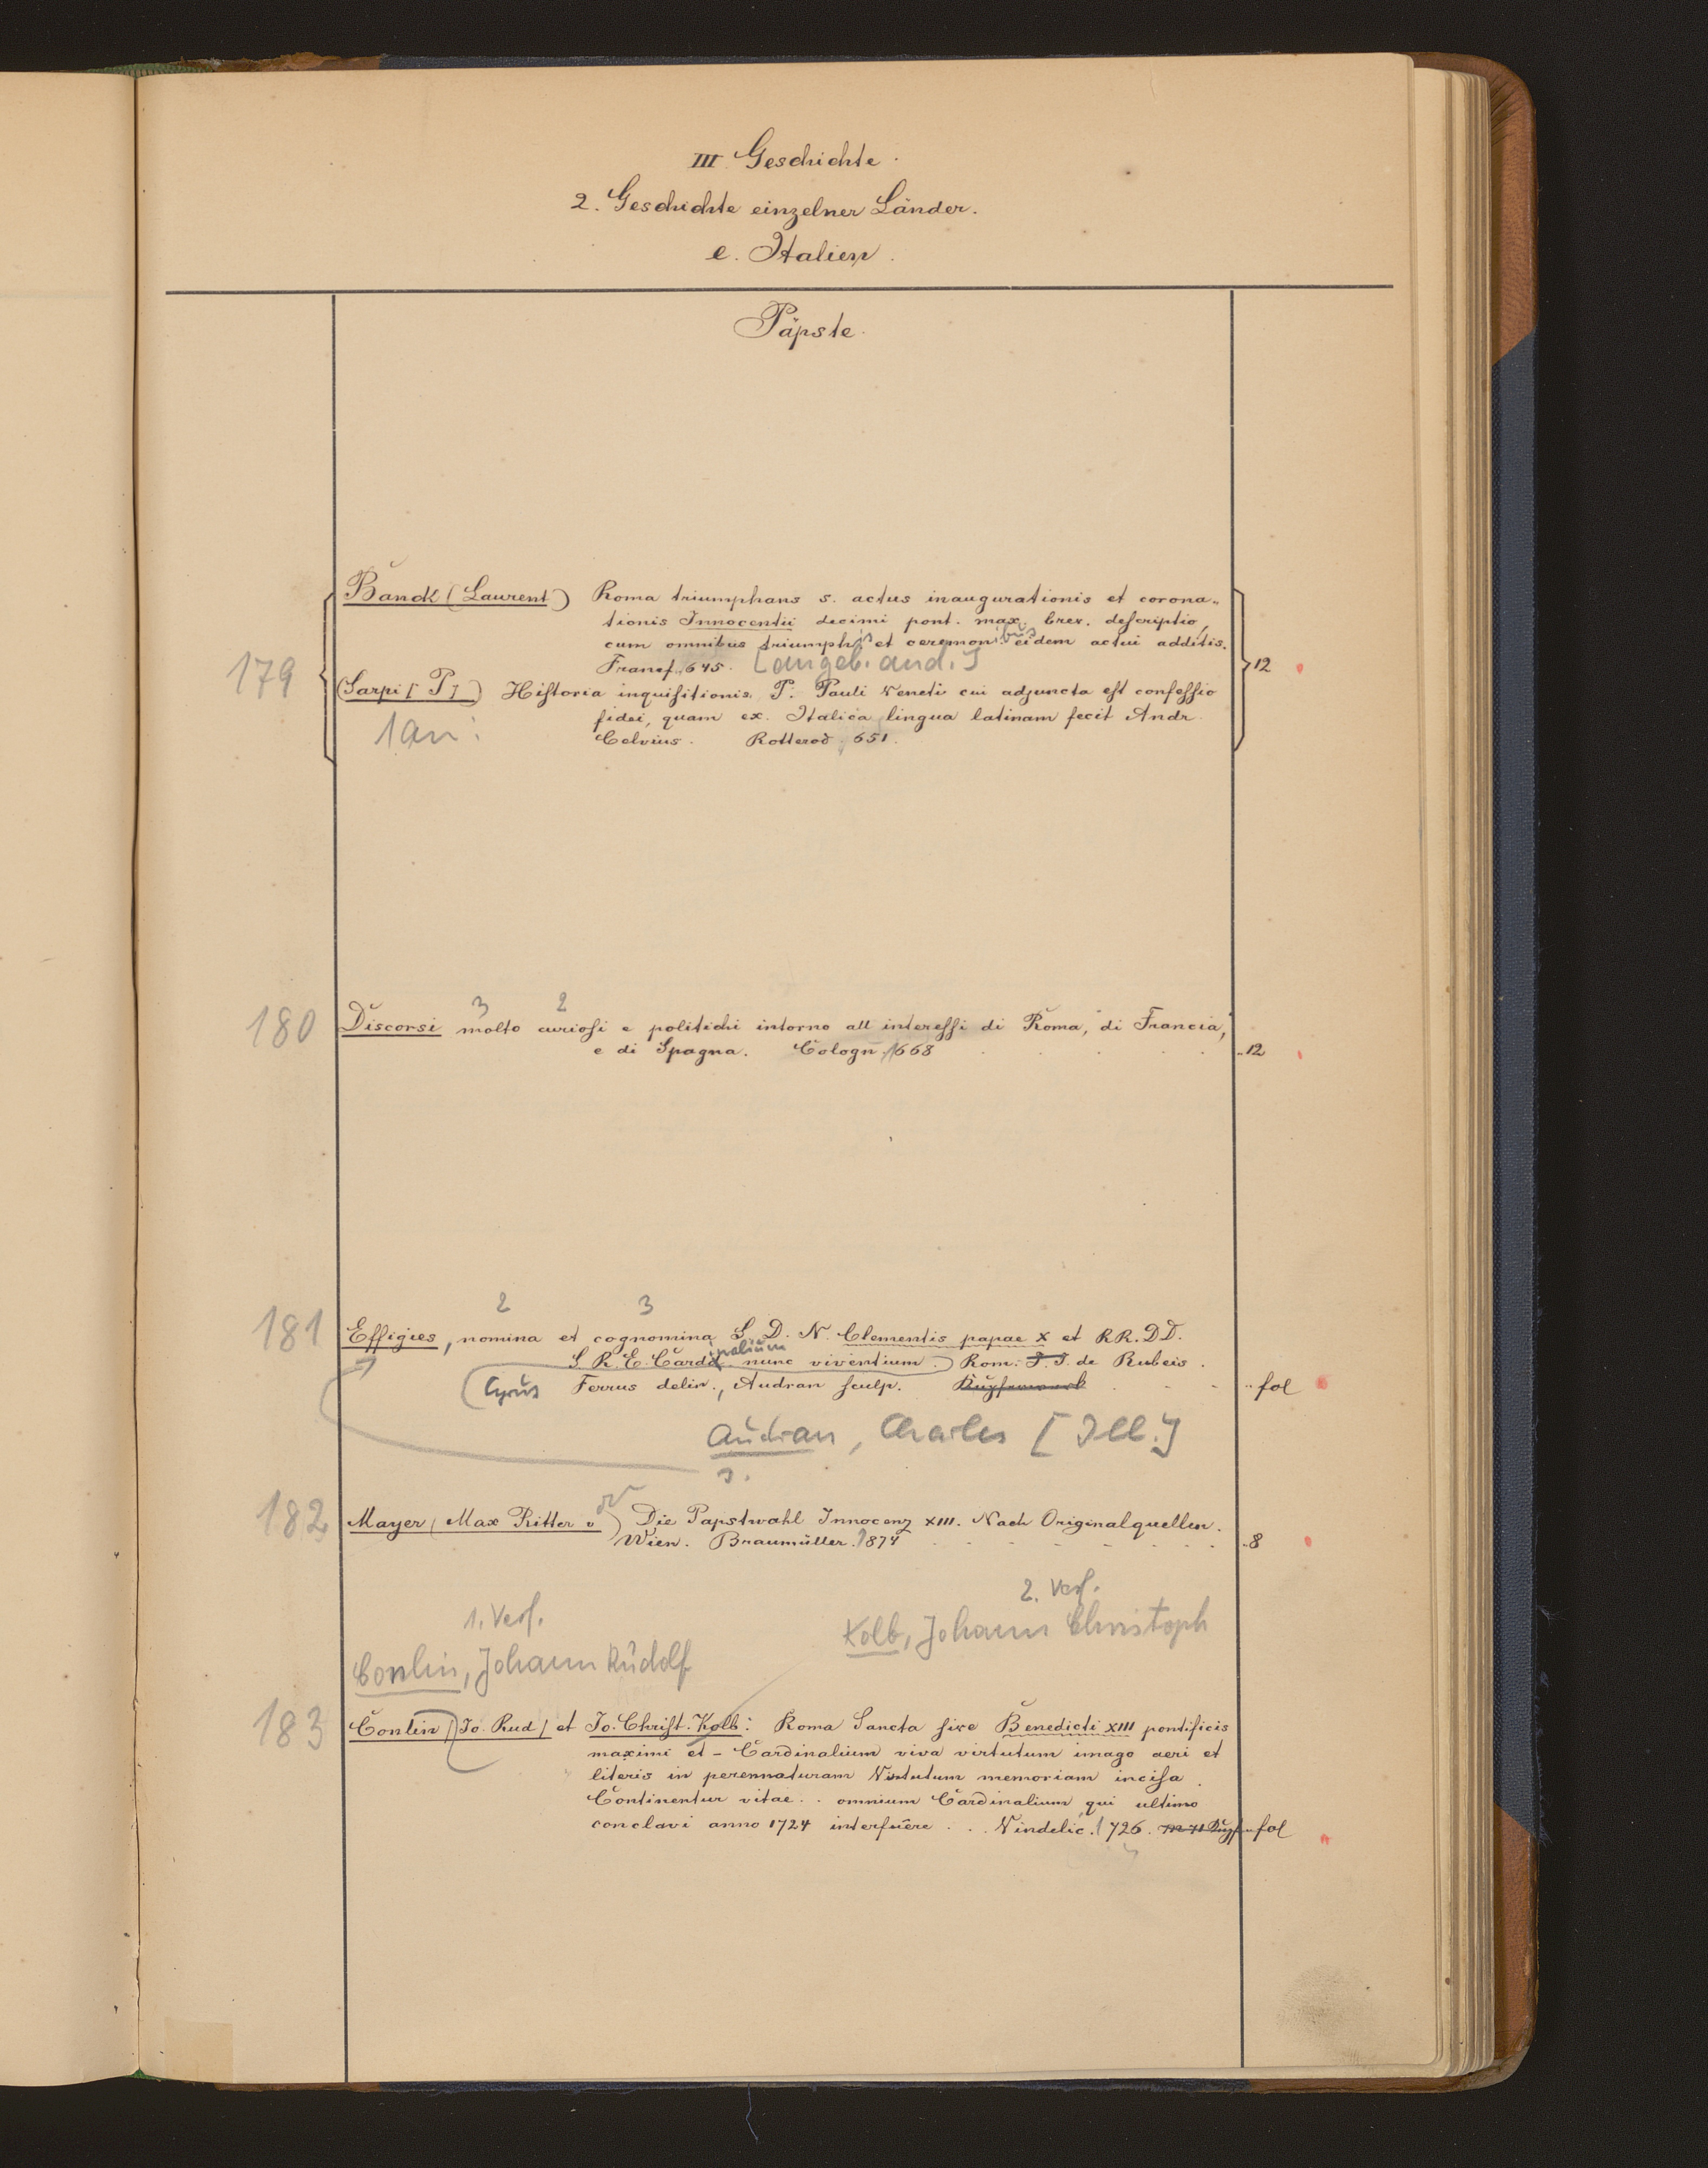 III Geschichte.
2. Geschichte einzelner Länder.
e. Italien.
Päpste.
Banck (Laurent) Roma triumphans s. actus inaugurationis et corona„
tionis Innocentii decimi pont. max. brev. descriptio,
cum omnibus triumphis et ceremonibus eidem actui additis.
179 Francf. 645. [angeb. and.] 12
(Sarpi [P]) Historia inquisitionis P. Pauli Veneti cui adjuncta est confessio
fidei, quam ex Italica lingua latinam fecit Andr.
1 an: Colvius. Rotterod. 651.
3 2
180 Discorsi molto curiosi e politichi intorno all interessi di Roma, di Francia,
e di Spagna. Cologn. 1668 12
2 3
181 Effigies, nomina et cognomina S. D. N. Clementis papae X et RR. DD.
S. R. E. Cardd inalium nunc viventium.) Rom. J. J. de Rubeis.
(Cyrus Ferrus delin., Audran sculp. Kupferwerk fol
Audran, Charles [Ill.]
s.
182 Mayer (Max Ritter v) Die Papstwahl Innocenz XIII. Nach Originalquellen.
Wien. Braumüller. 1874 8
1. Verf. 2. Verf.
Conlin, Johann Rudolf Kolb, Johann Christoph
183 Conlin (Jo. Rud) et Jo. Christ. Kolb: Roma Sancta sive Benedicti XIII pontificis
maximi et – Cardinalium viva virtutum imago aeri et
literis in perennaturam Virtutum memoriam incisa.
Continentur vitae . . omnium Cardinalium qui ultimo
conclavi anno 1724 interfuêre . . Vindelic. 1726. fol